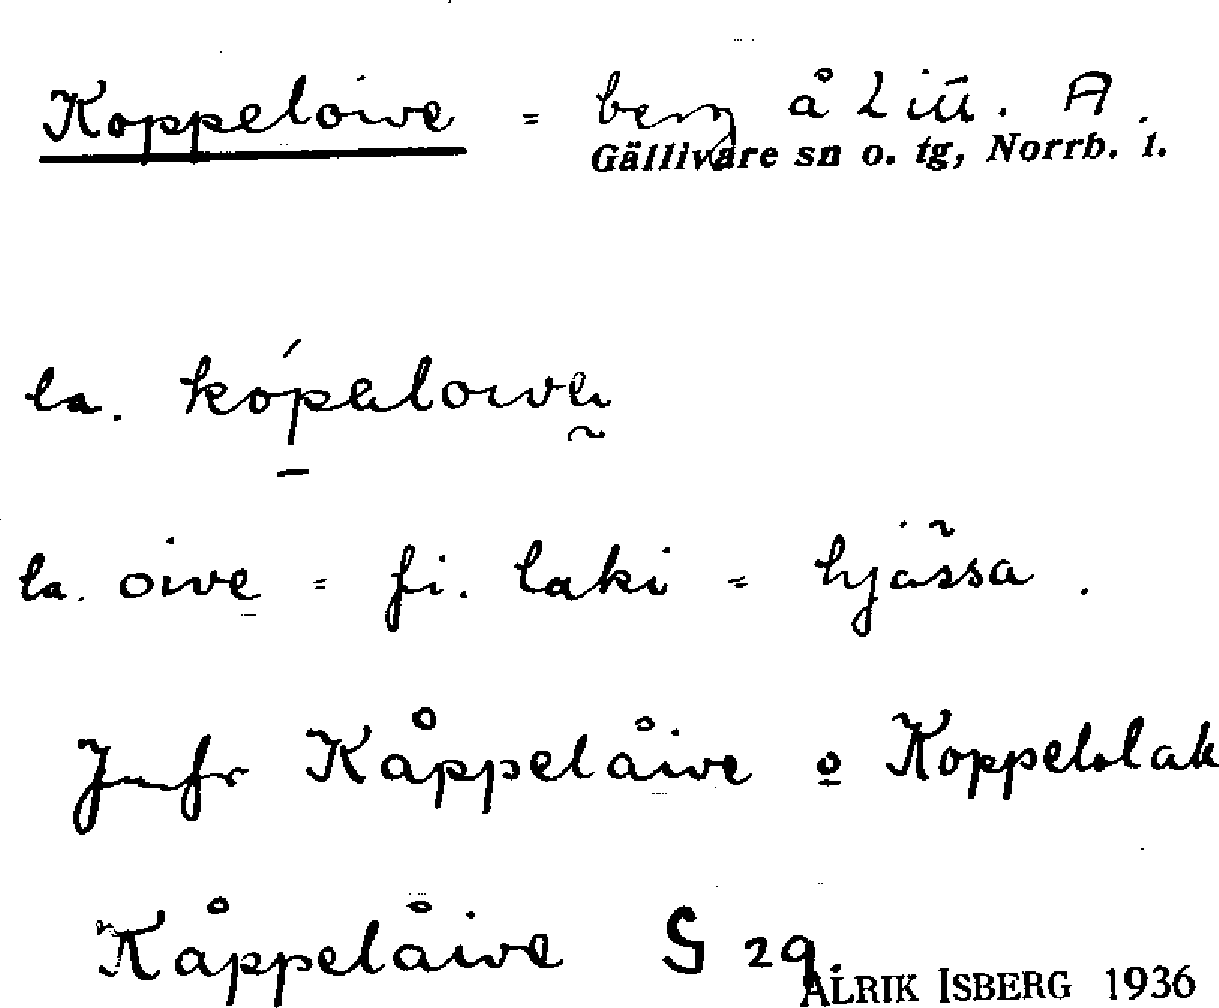 Koppeloive = berg å Lill. A.
Gällivare sn o. tg, Norrb. l.
la.
la. oive = fi. laki = hjässa.
Jmfr Kåppelåive o Koppelolak
Kåppelåive S 29.
ALRIK ISBERG 1936